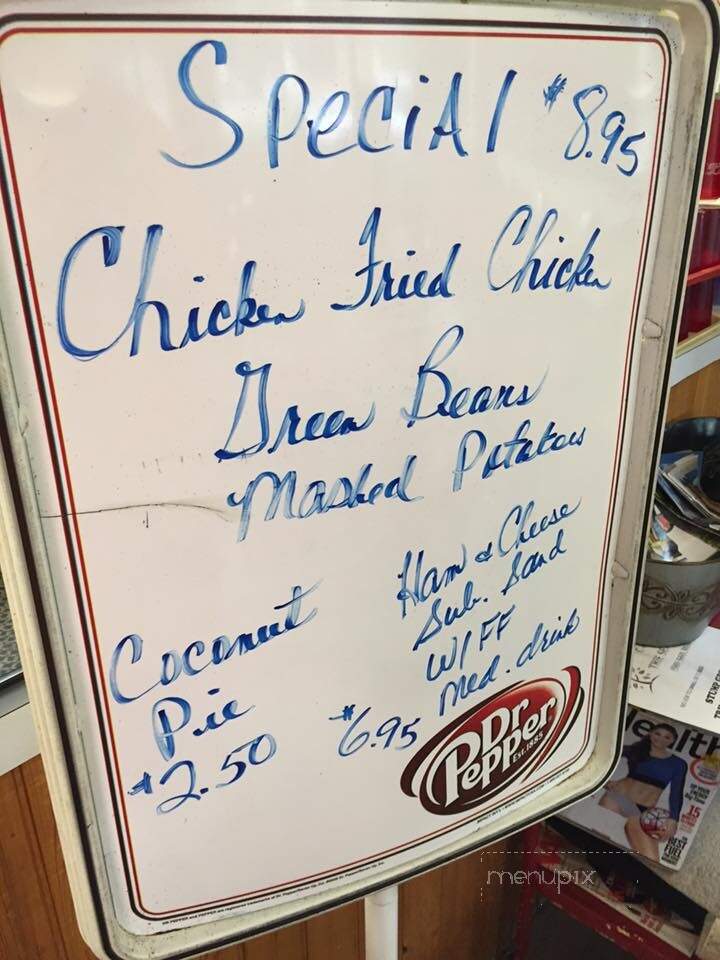 SpeciAl $8.95
Chicken Fried Chicken
Green Beans
Mashed Potatoes
Ham & Cheese
Sub. Sand
W/FF
med. drink
$6.95
Coconut
Pie
$2.50
Dr Pepper
EST. 1885
menupix
ealth
15